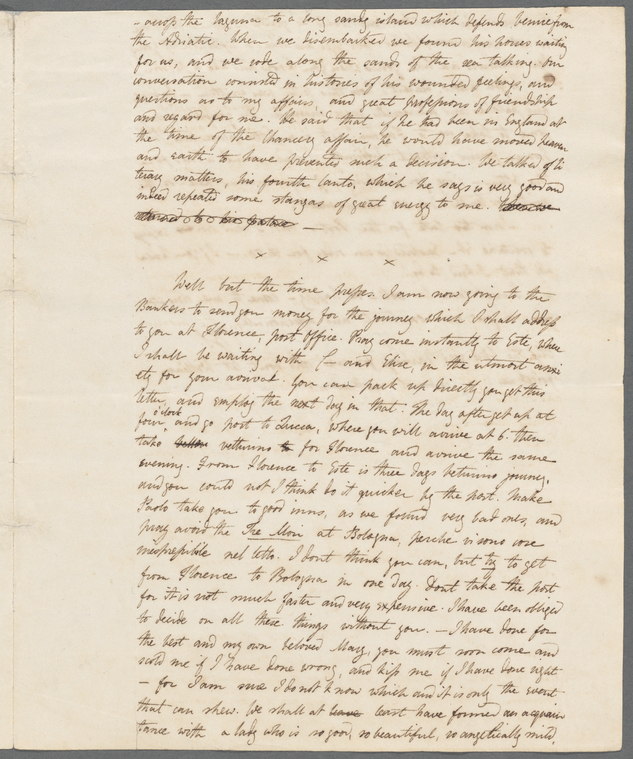 -across the laguna to a long sandy island which defends Venice from
the Adriatic. When we disembarked we found his horses waiting
for us, and we rode along the sands of the sea talking. Our
conversation consisted in histories of his wounded feelings, and
questions as to my affairs, and great professions of friendship
and regard for me. He said that if he had been in England at
the time of the Chancery affair, he would have moved heaven
and earth to have prevented such a decision. We talked of li
terary matters, his fourth Canto, which he says is very good and
indeed repeated some stanzas of great energy to me. When we
returned to his palace —
x x x
Well but the time presses. I am now going to the
Bankers to send you money for the journey which I shall address
to you at Florence, post office. Pray come instantly to Este, where
I shall be waiting with C— and Elise, in the utmost anxi
ety for your arrival. You can pack up directly you get this
letter, and employ the next day in that. The day after get up at
four o'clock, and go post to Lucca, where you will arrive at 6. then
take vetturino for Florence and arrive the same
evening. From Florence to Este is three days vetturino journey,
and you could not I think do it quicker by the post. Make
Paolo take you to good inns, as we found very bad ones, and
pray avoid the Tre Mori at Bologna, perche vi sono cose
inespressibile nel letto. I dont think you can, but try to get
from Florence to Bologna in one day. Dont take the post
for it is not much faster and very expensive. I have been obliged
to decide on all these things without you. — I have done for
the best and my own beloved Mary, you must soon come and
scold me if I have done wrong, and kiss me if I have done right
— for I am sure I do not know which and it is only the event
that can shew. We shall at least have formed an acquain
tance with a lady who is so good, so beautiful, so angelically mild,